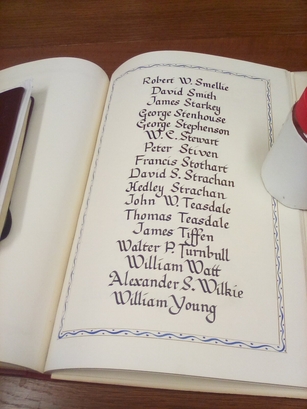 Robert W. Smellie
David Smith
James Starkey
George Stenhouse
George Stephenson
W. E. Stewart
Peter Stiven
Francis Stothart
David S. Strachan
Hedley Strachan
John W. Teasdale
Thomas Teasdale
James Tiffen
Walter P. Turnbull
William Watt
Alexander S. Wilkie
William Young